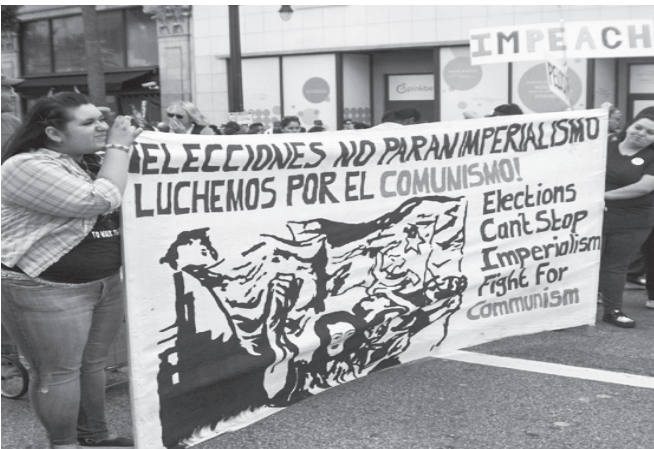 IMPEACH
Spinkbe
¡ELECCIONES NO PARAN IMPERIALISMO
LUCHEMOS POR EL COMUNISMO!
Elections
Can't Stop
Imperialism
Fight For
Communism